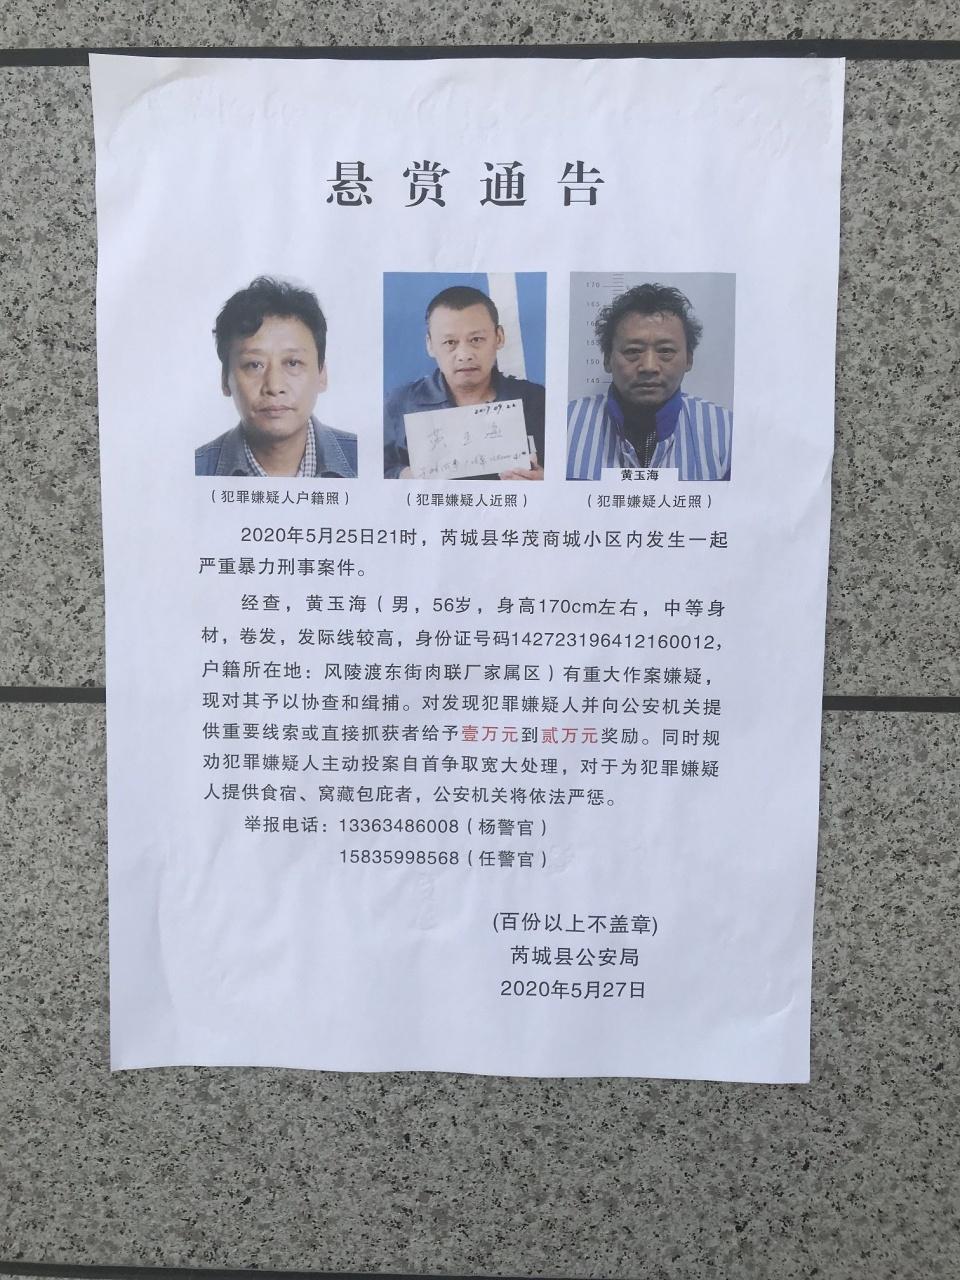 悬赏通告
170
165
160
155
150
145
2017.09.22
黄玉海
黄玉海
（犯罪嫌疑人户籍照）
（犯罪嫌疑人近照）
（犯罪嫌疑人近照）
2020年5月25日21时，芮城县华茂商城小区内发生一起
严重暴力刑事案件。
经查，黄玉海（男，56岁，身高170cm左右，中等身
材，卷发，发际线较高，身份证号码142723196412160012，
户籍所在地：风陵渡东街肉联厂家属区）有重大作案嫌疑，
现对其予以协查和缉捕。对发现犯罪嫌疑人并向公安机关提
供重要线索或直接抓获者给予壹万元到贰万元奖励。同时规
劝犯罪嫌疑人主动投案自首争取宽大处理，对于为犯罪嫌疑
人提供食宿、窝藏包庇者，公安机关将依法严惩。
举报电话：13363486008（杨警官）
15835998568（任警官）
(百份以上不盖章)
芮城县公安局
2020年5月27日